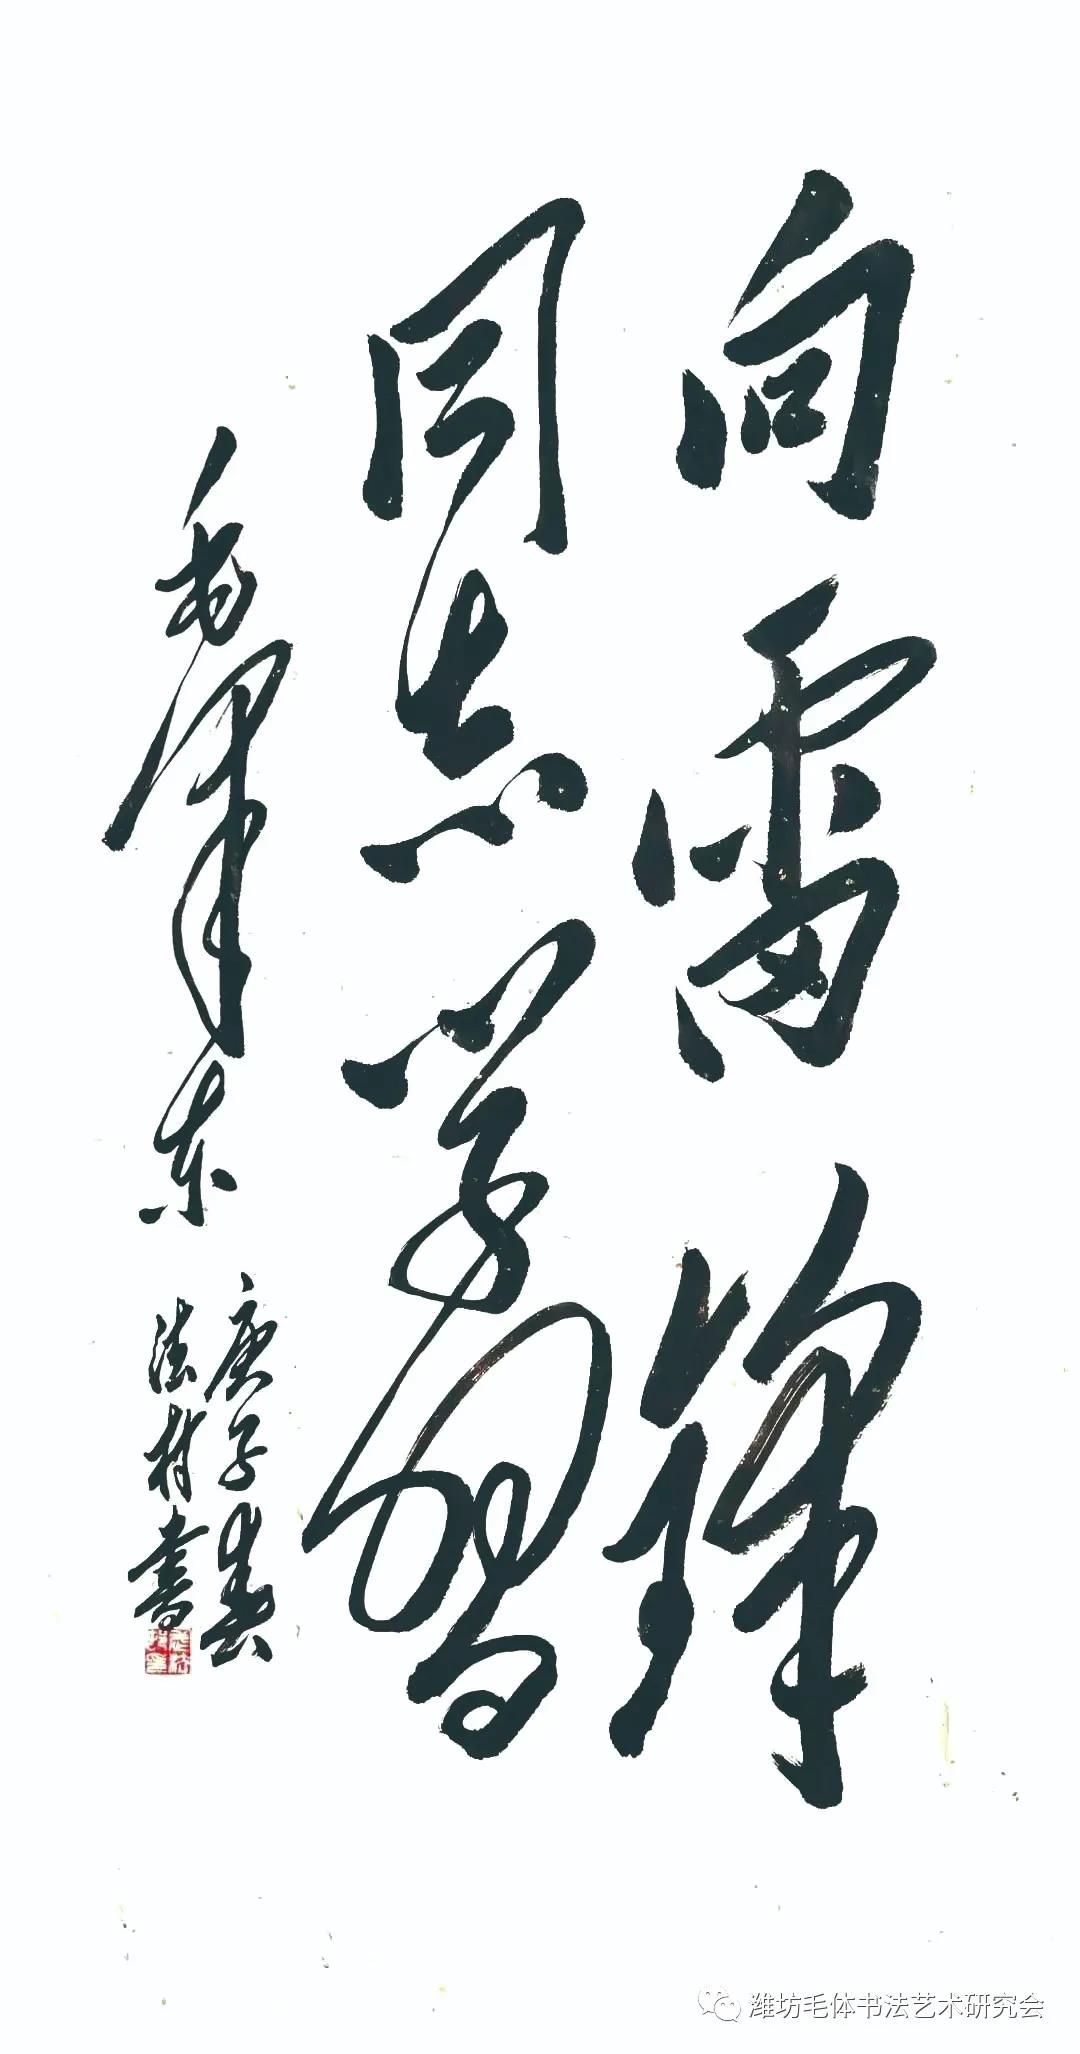 向雷锋
同志学习
毛泽东
庚子春
法村書
潍坊毛体书法艺术研究会